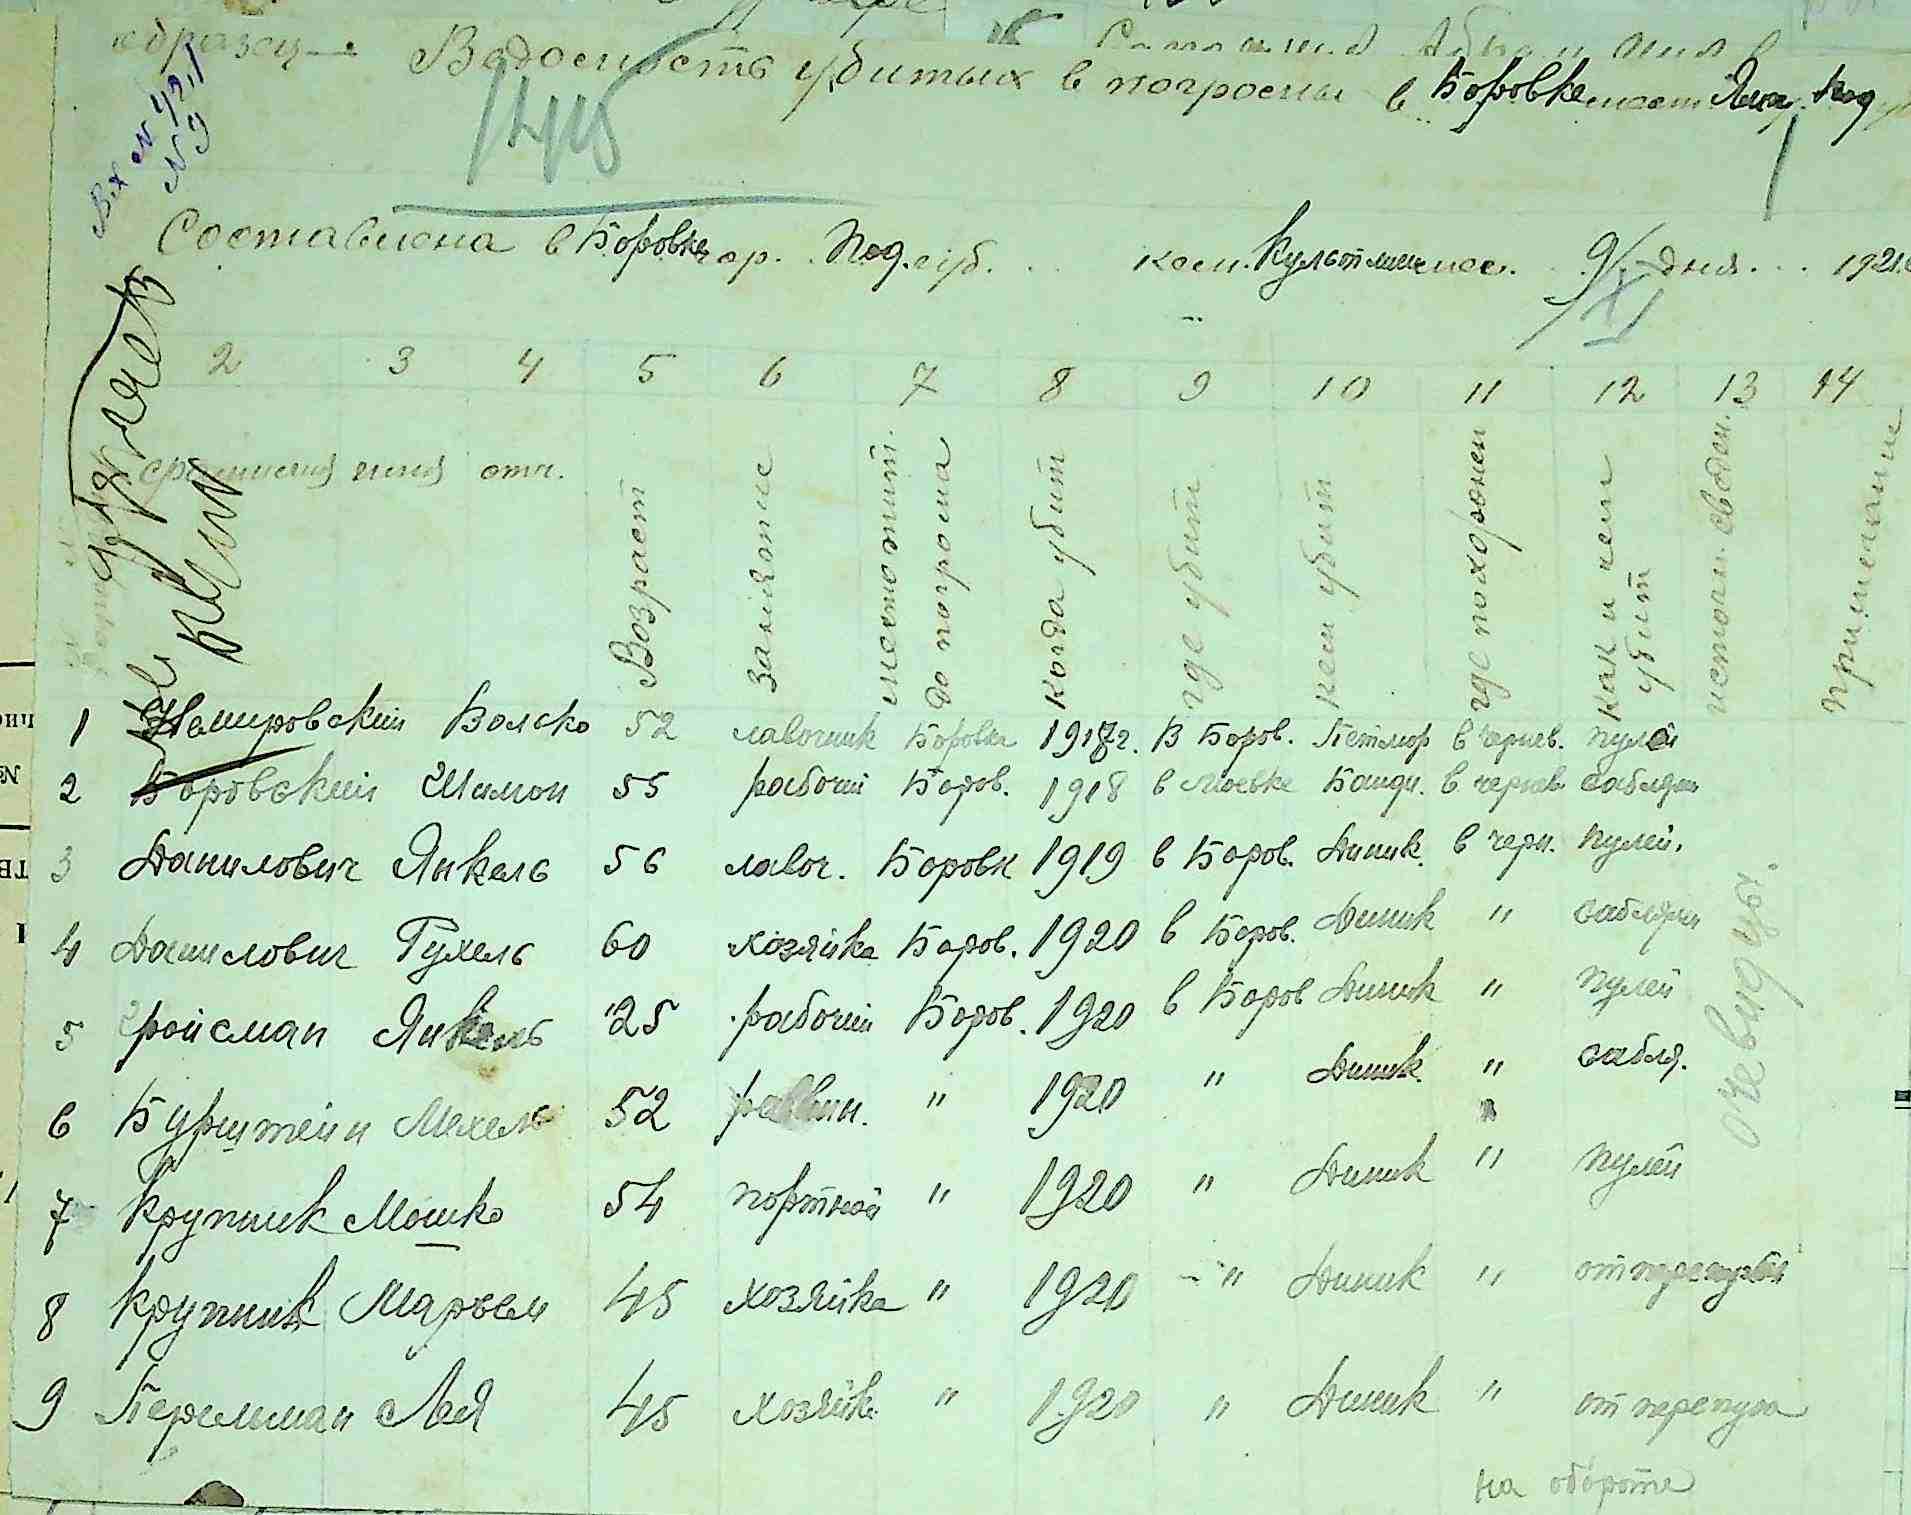 образец
Ведомость убитых в погроме в Боровке мест Под
145
Вх № 4211
№ 9
Составлена в Боровке гор. Под. губ. ком. Культ 9/XI дня 1921
2 3 4 5 6 7 8 9 10 11 12 13 14
фамилия имя отч. Возраст занятие местожит. до погрома когда убит где убит кем убит где похоронен как и чем убит источн. сведен. примечание
1 Немировский Волько 52 лавочник Боровка 1918 г. В Боров. Петлюр в черев. пулей
2 Боровский Шимон 55 рабочий Боров. 1918 в Банди. в саблями
3 Данилович Янкель 56 лавоч. Боровк 1919 в Боров. Деник. в черн. пулей.
4 Данилович Рухель 60 хозяйка Боров. 1920 в Боров. Деник " саблями
5 Ройсман Янкель 25 рабочий Боров. 1920 в Боров Деник " пулей
6 Бурштейн Мехель 52 раввин. " 1920 " Деник. " сабля.
7 Крупник Мошко 54 портной " 1920 " Деник " пулей
8 Крупник Марьем 45 хозяйка " 1920 " Деник " от перепуга
9 Перельман Лея 45 хозяйка " 1920 " Деник " от перепуга
очевидцы.
на обороте